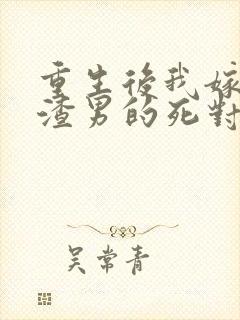 重生後我嫁
渣男的死對
吳常青